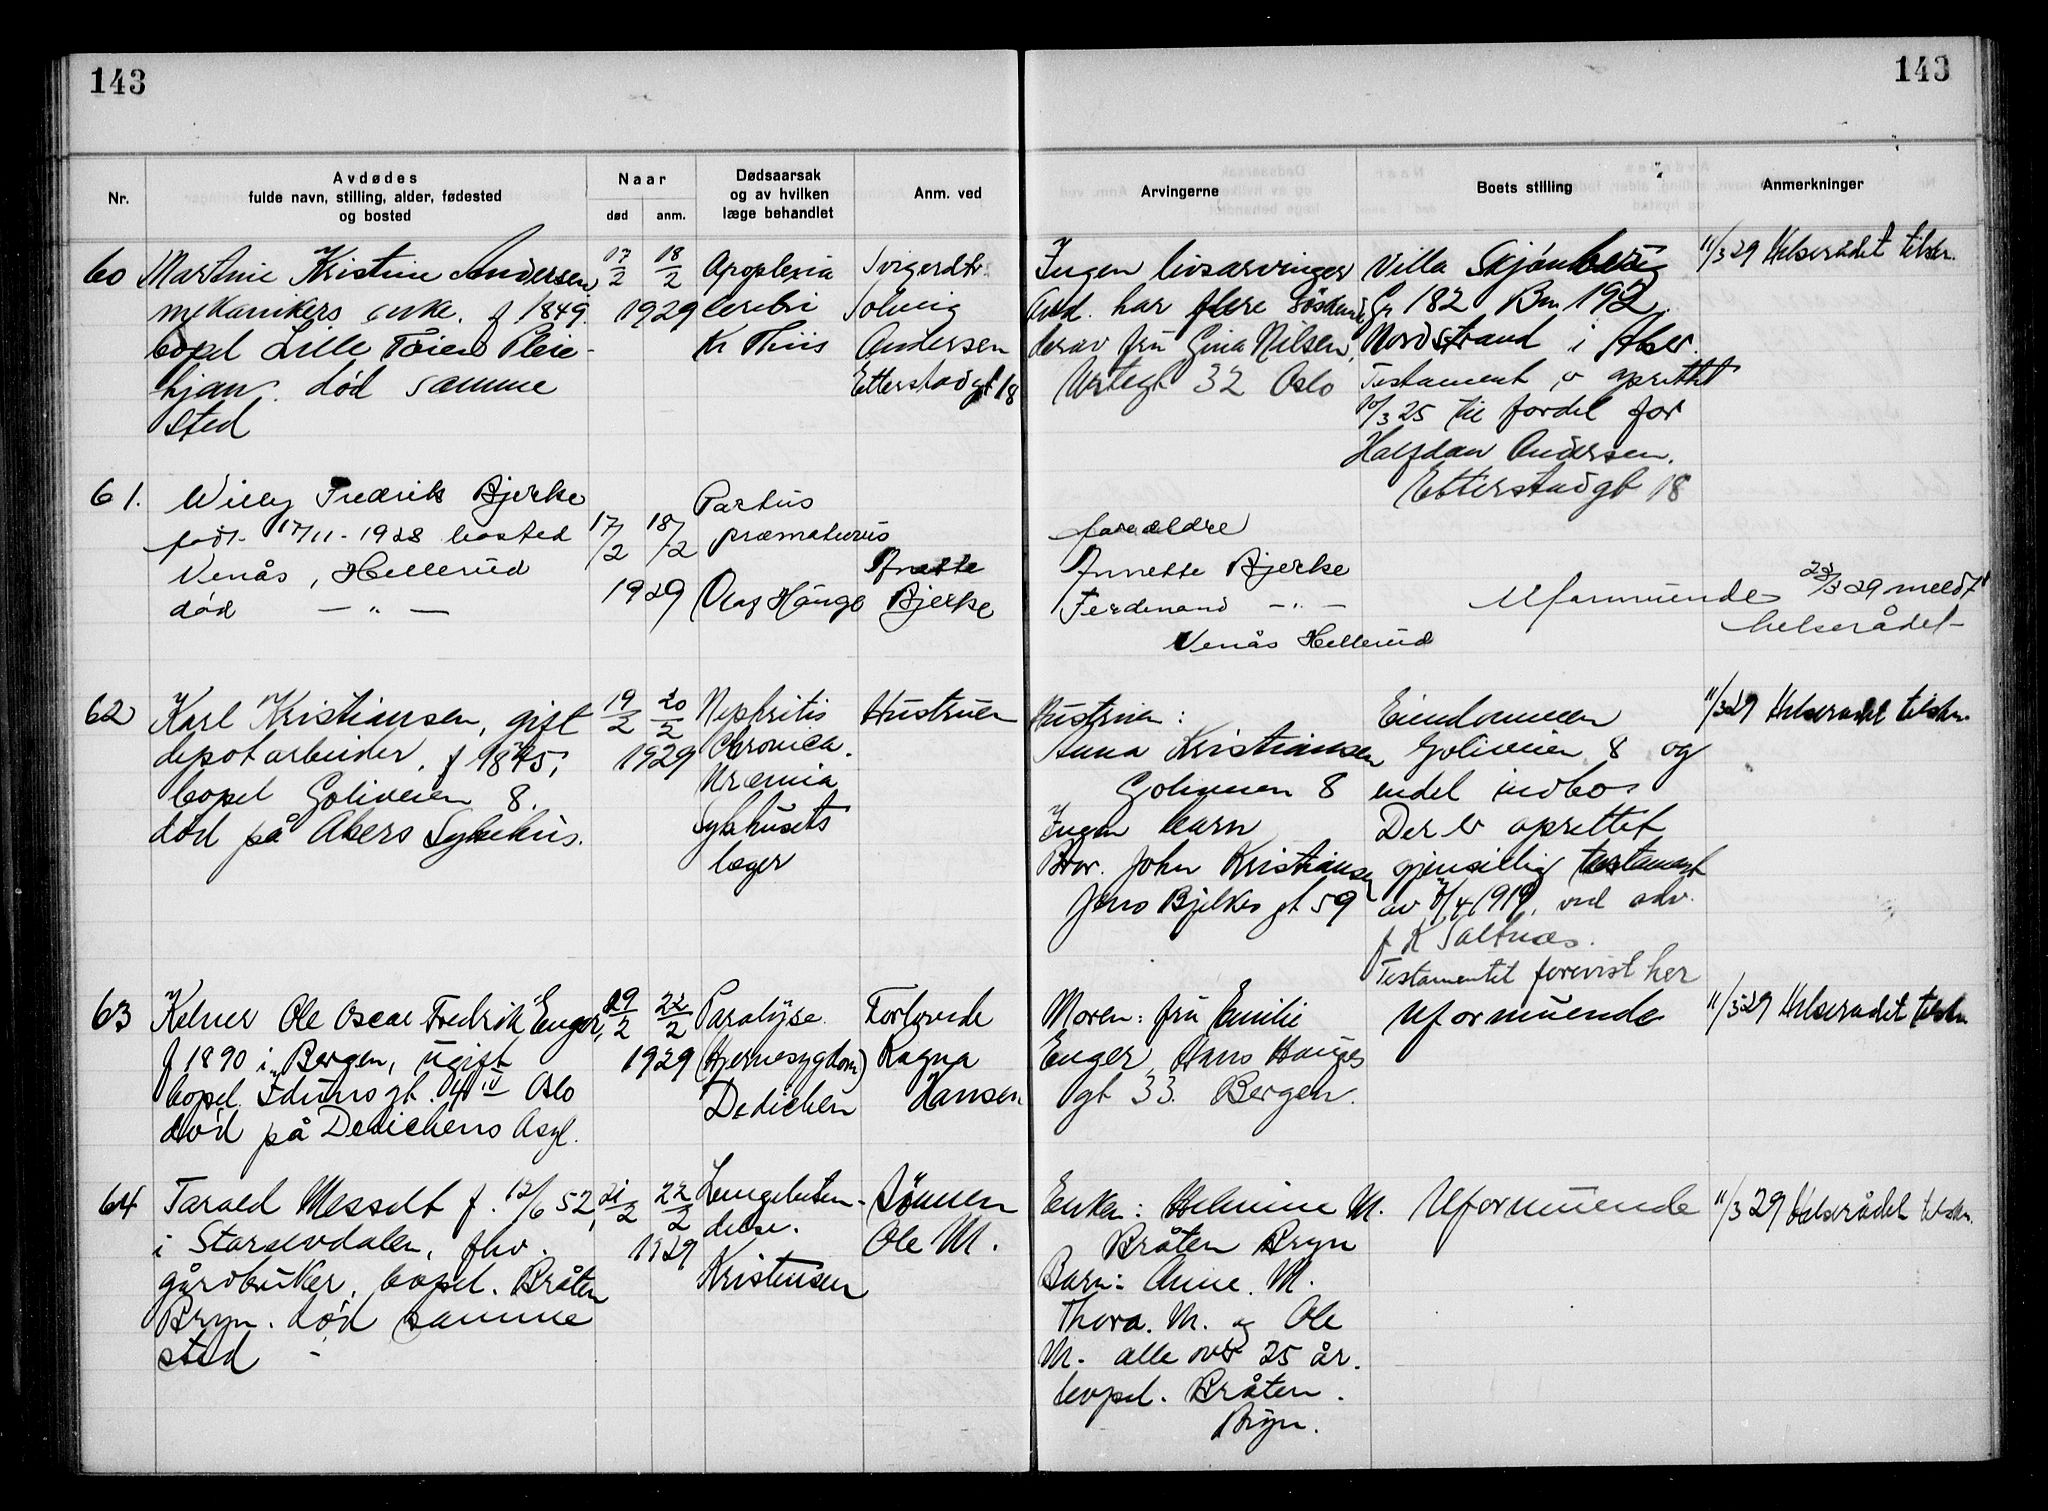 143
143
Nr.
Avdødes
fulde navn, stilling, alder, fødested
og bosted
Naar
død
anm.
Dødsaarsak
og av hvilken
læge behandlet
Anm. ved
Arvingerne
Boets stilling
Anmerkninger
60 Martine Kristine Andersen
mekanikers enke. f 1849.
bopel Lille Tøien Pleie-
hjem. død samme
sted
17/2 18/2
1929
Apoplexia
cerebri
Kr Thiis
Svigerdtr.
Solveig
Andersen
Etterstadgt 18
Ingen livsarvinger
Avd. har flere søsken
derav fru Gina Nilsen,
Urtegt 32 Oslo
Villa Skjønberg
Gr 182 Bn. 192.
Nordstrand i Aker.
Testament er oprettet
10/3 25 til fordel for
Halfdan Andersen.
Etterstadgt 18
11/3 29 Helserådet tilskr.
61. Willy Fredrik Bjerke
født 17/11-1928 bosted
Venås, Hellerud
død — " —
17/2 18/2
1929
Partus
præmaturus
Olaf Hauge
Anette
Bjerke
foreldre
Annette Bjerke
Ferdinand — " —
Venås Hellerud
Uformuende
22/3 29 meldt
helserådet
62 Karl Kristiansen, gift
depotarbeider, f 1875,
bopel Goliveien 8.
død på Akers Sykehus.
19/2 20/2
1929
Nephritis
Chronica.
Uræmia
Sykhusets
læger
Hustruen
Hustruen:
Anna Kristiansen
Goliveien 8
Ingen barn
Bror. John Kristiansen
Jens Bjelkes gt 59
Eiendommen
Goliveien 8 og
endel indbo
Der er oprettet
gjensidig testament
1919, ved adv.
Saltnes.
Testamentet forevist her
11/3 29 Helserådet tilskr.
63 Kelner Ole Oscar Fredrik Enger,
f 1890 i Bergen, ugift
bopel. Iduns gt. 4 IV Oslo
død på Dedichens Asyl.
22/2
1929
Paralyse.
(Hjernesygdom)
Dedichen
Forlovede
Ragna
Hansen
Moren: fru Emilie
Enger, Hans Hauges
gt 33. Bergen.
Uformuende
11/3 29 Helserådet tilskr.
64 Tarald Messelt f. 12/6 52,
i Storelvdalen, fhv.
gårdbruker, bopel. Bråten
Bryn. død samme
sted -
21/2 22/2
1929
Lungebeten-
delse.
Kristensen
Sønnen
Ole M.
Enken: Helmine M.
Bråten Bryn
Barn: Anne. M.
Thora. M. og Ole
M. alle over 25 år.
bopel. Bråten.
Bryn.
Uformuende
11/3 29 Helserådet tilskr.